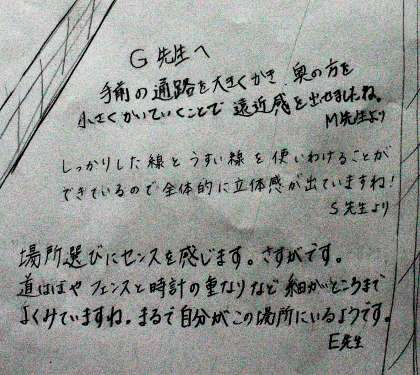 G先生へ
手前の通路を大きくかき 奥の方を
小さくかいていくことで 遠近感を出せましたね。
M先生より
しっかりした線とうすい線を使いわけることが
できているので全体的に立体感が出ていますね!
S先生より
場所選びにセンスを感じます。さすがです。
道はばや フェンスと時計の重なりなど 細かいところまで
よくみていますね。まるで自分がこの場所にいるようです。
E先生